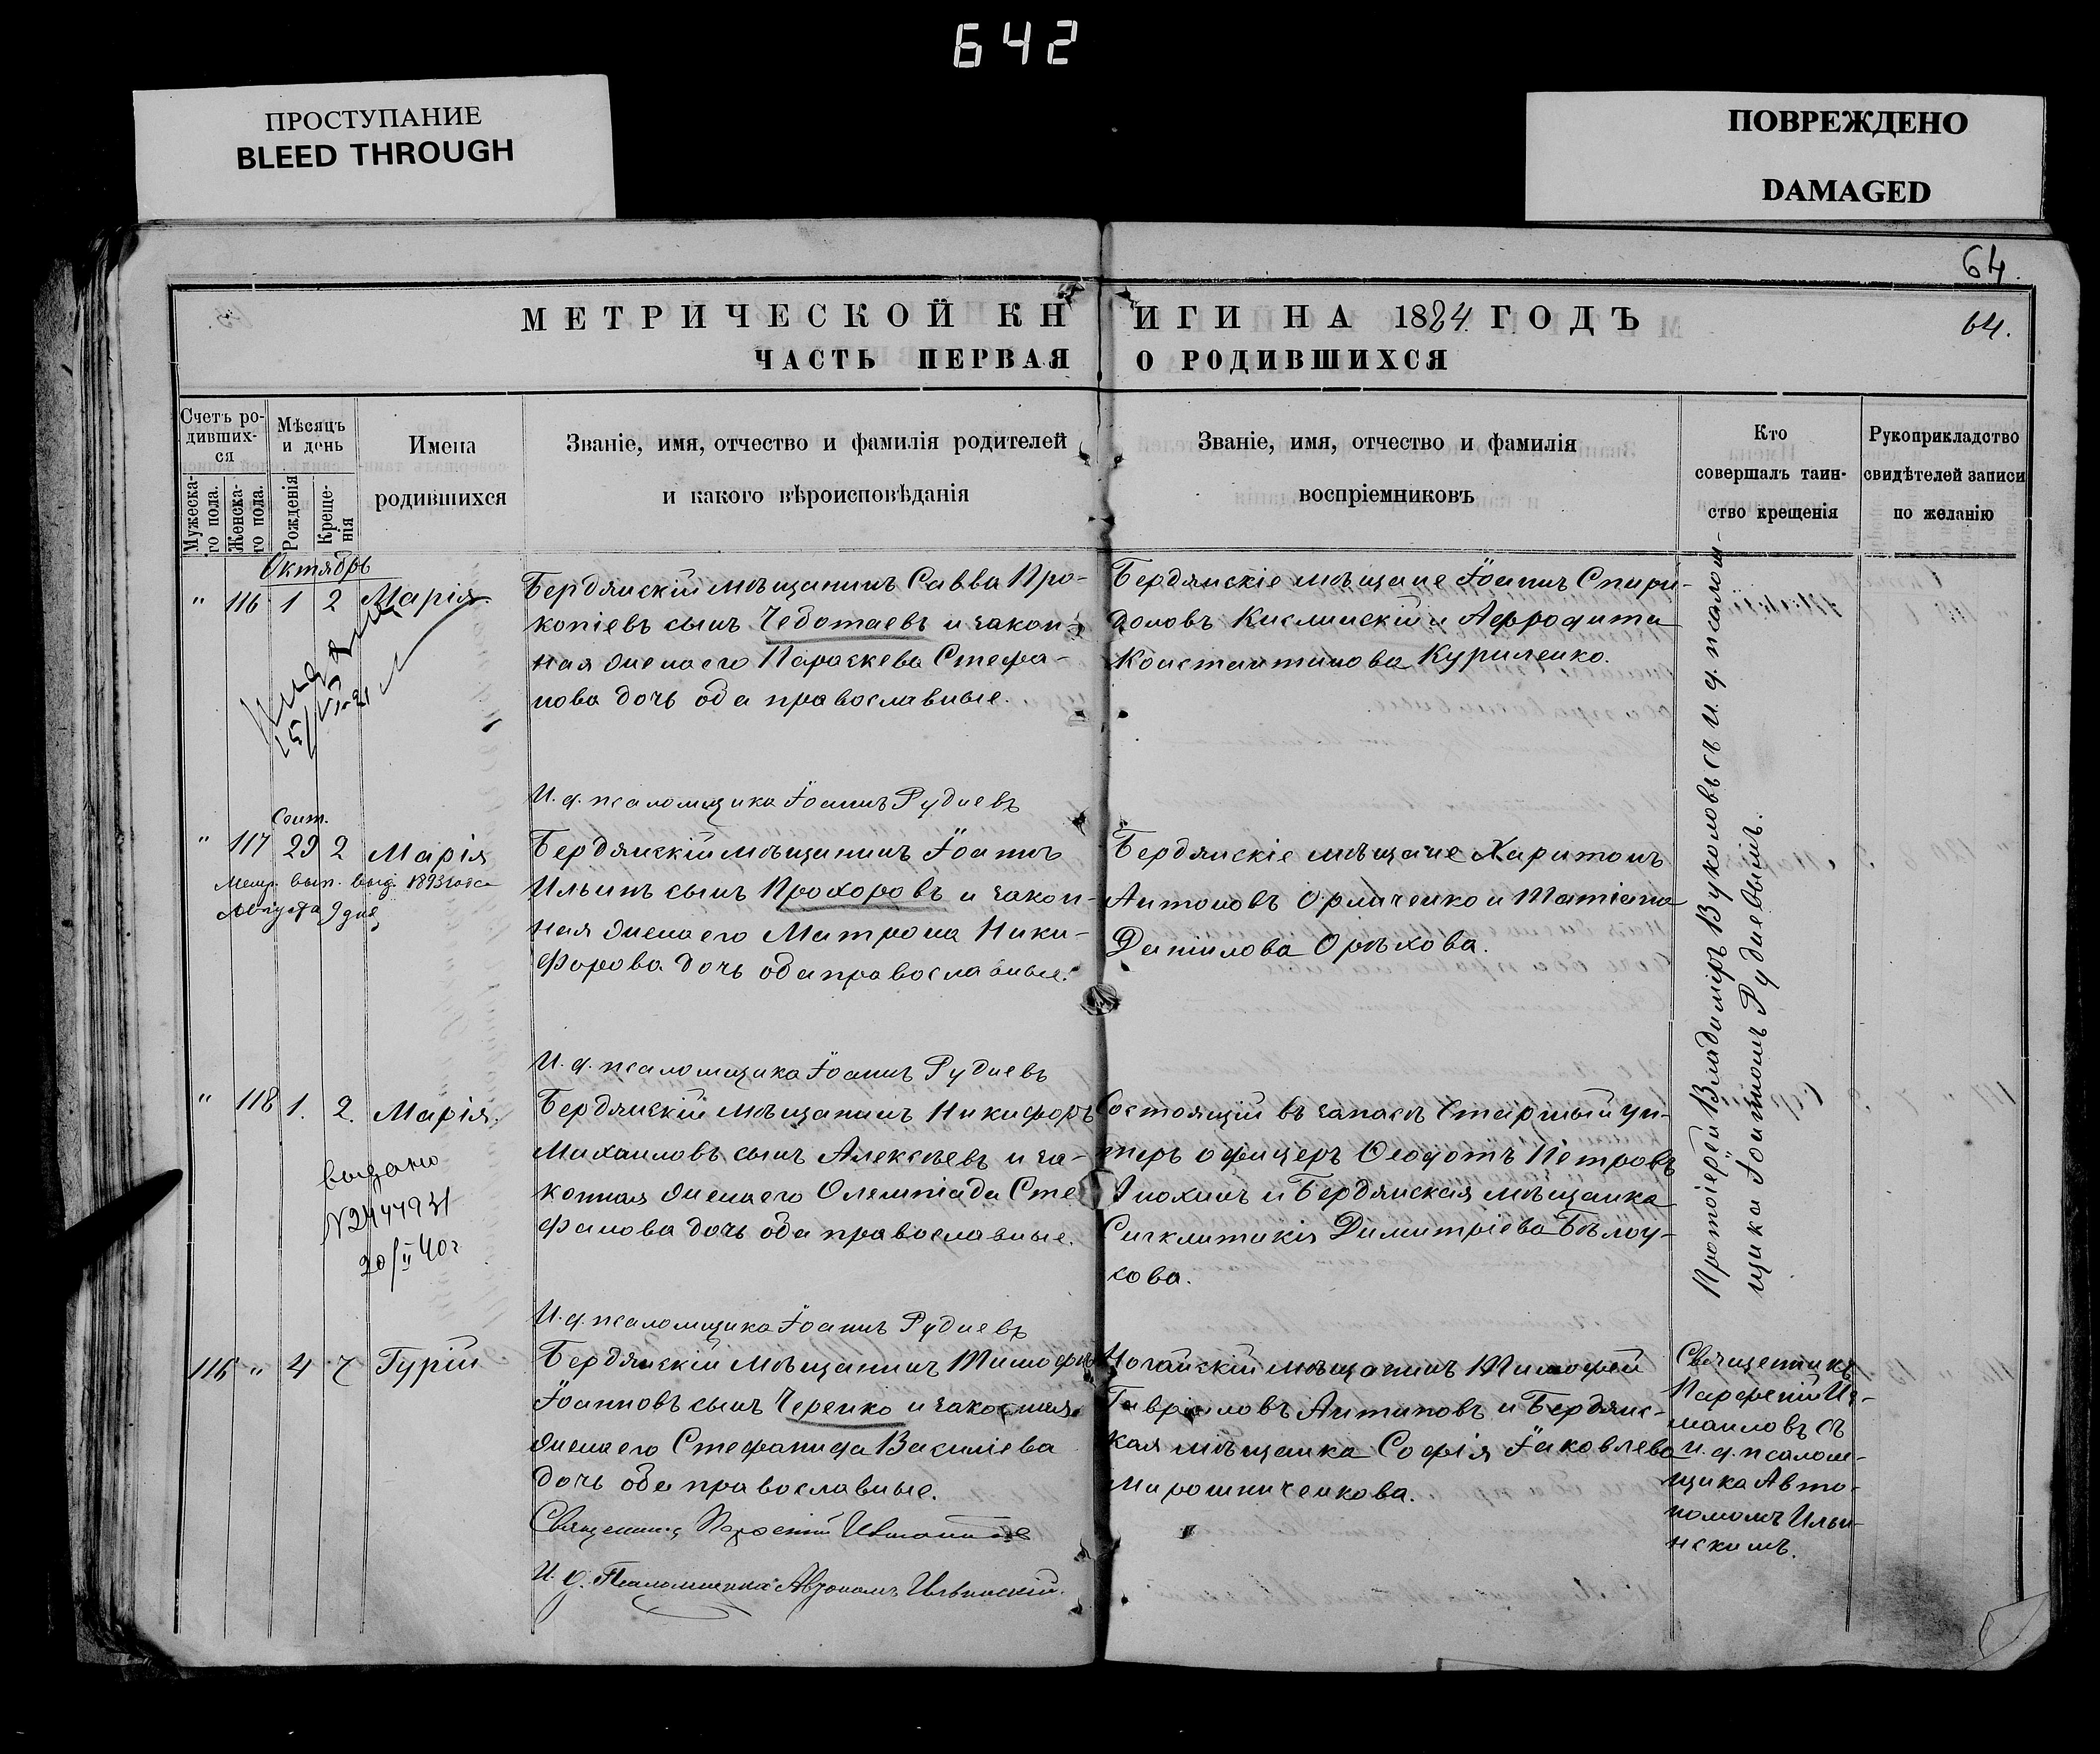 642
ПРОСТУПАНИЕ
BLEED THROUGH
ПОВРЕЖДЕНО
DAMAGED
64.
МЕТРИЧЕСКОЙ КНИГИ НА 1884 ГОДЪ
64.
ЧАСТЬ ПЕРВАЯ О РОДИВШИХСЯ
Счетъ ро-
дивших-
ся
Мужеска-
го пола.
Женска-
го пола.
Мѣсяцъ
и день
Рожденія
Креще-
нія
Имена
родившихся
Званіе, имя, отчество и фамилія родителей
и какого вѣроисповѣданія
Званіе, имя, отчество и фамилія
воспріемниковъ
Кто
совершалъ таин-
ство крещенія
Рукоприкладство
свидѣтелей записи
по желанію
Октябрь
" 116 1 2 Марія.
Бердянскій мѣщанинъ Савва Про-
копіевъ сынъ Чеботаевъ и закон-
ная жена его Параскева Стефа-
нова дочь оба православные.
И. д. псаломщика Іоаннъ Рудневъ
Бердянскіе мѣщане Іоаннъ Спири-
доновъ Кислинскій и Афродита
Константинова Куриленко.
Протоіерей Владиміръ Вуколовъ съ И. д. псалом-
щика Іоанномъ Рудневымъ.
Сент.
" 117 29 2 Марія
Метр. вып. выд. 1893 года
Августа 9 дня
Бердянскій мѣщанинъ Іоаннъ
Ильинъ сынъ Прохоровъ и закон-
ная жена его Матрона Ники-
форова дочь оба православные.
И. д. псаломщика Іоаннъ Рудневъ
Бердянскіе мѣщане Харитонъ
Антоновъ Орличенко и Татіана
Даніилова Орѣхова.
" 118 1. 2. Марія.
выдано
20/II 40 г
Бердянскій мѣщанинъ Никифоръ
Михаиловъ сынъ Алексѣевъ и за-
конная жена его Олемпіада Сте-
фанова дочь оба православные.
И. д. псаломщика Іоаннъ Рудневъ
Состоящій въ запасѣ старшый ун-
теръ офицеръ Ѳеодотъ Петровъ
Анохинъ и Бердянская мѣщанка
Сигклитикія Димитріева Бѣлоу-
сова.
116 " 4 7 Гурій
Бердянскій мѣщанинъ Тимофей
Іоанновъ сынъ Черенко и законная
жена его Стефанида Василіева
дочь оба православные.
Священникъ Парфеній
И. д. Псаломщика Автономъ Ильинскій.
Ногайскій мѣщанинъ Тимофей
Гавріиловъ Антиповъ и Бердянс-
кая мѣщанка Софія Іаковлева
Мирошниченкова.
Священникъ
Парфеній Из-
маиловъ съ
И. д. псалом-
щика Авто-
номомъ Ильи-
нскимъ.